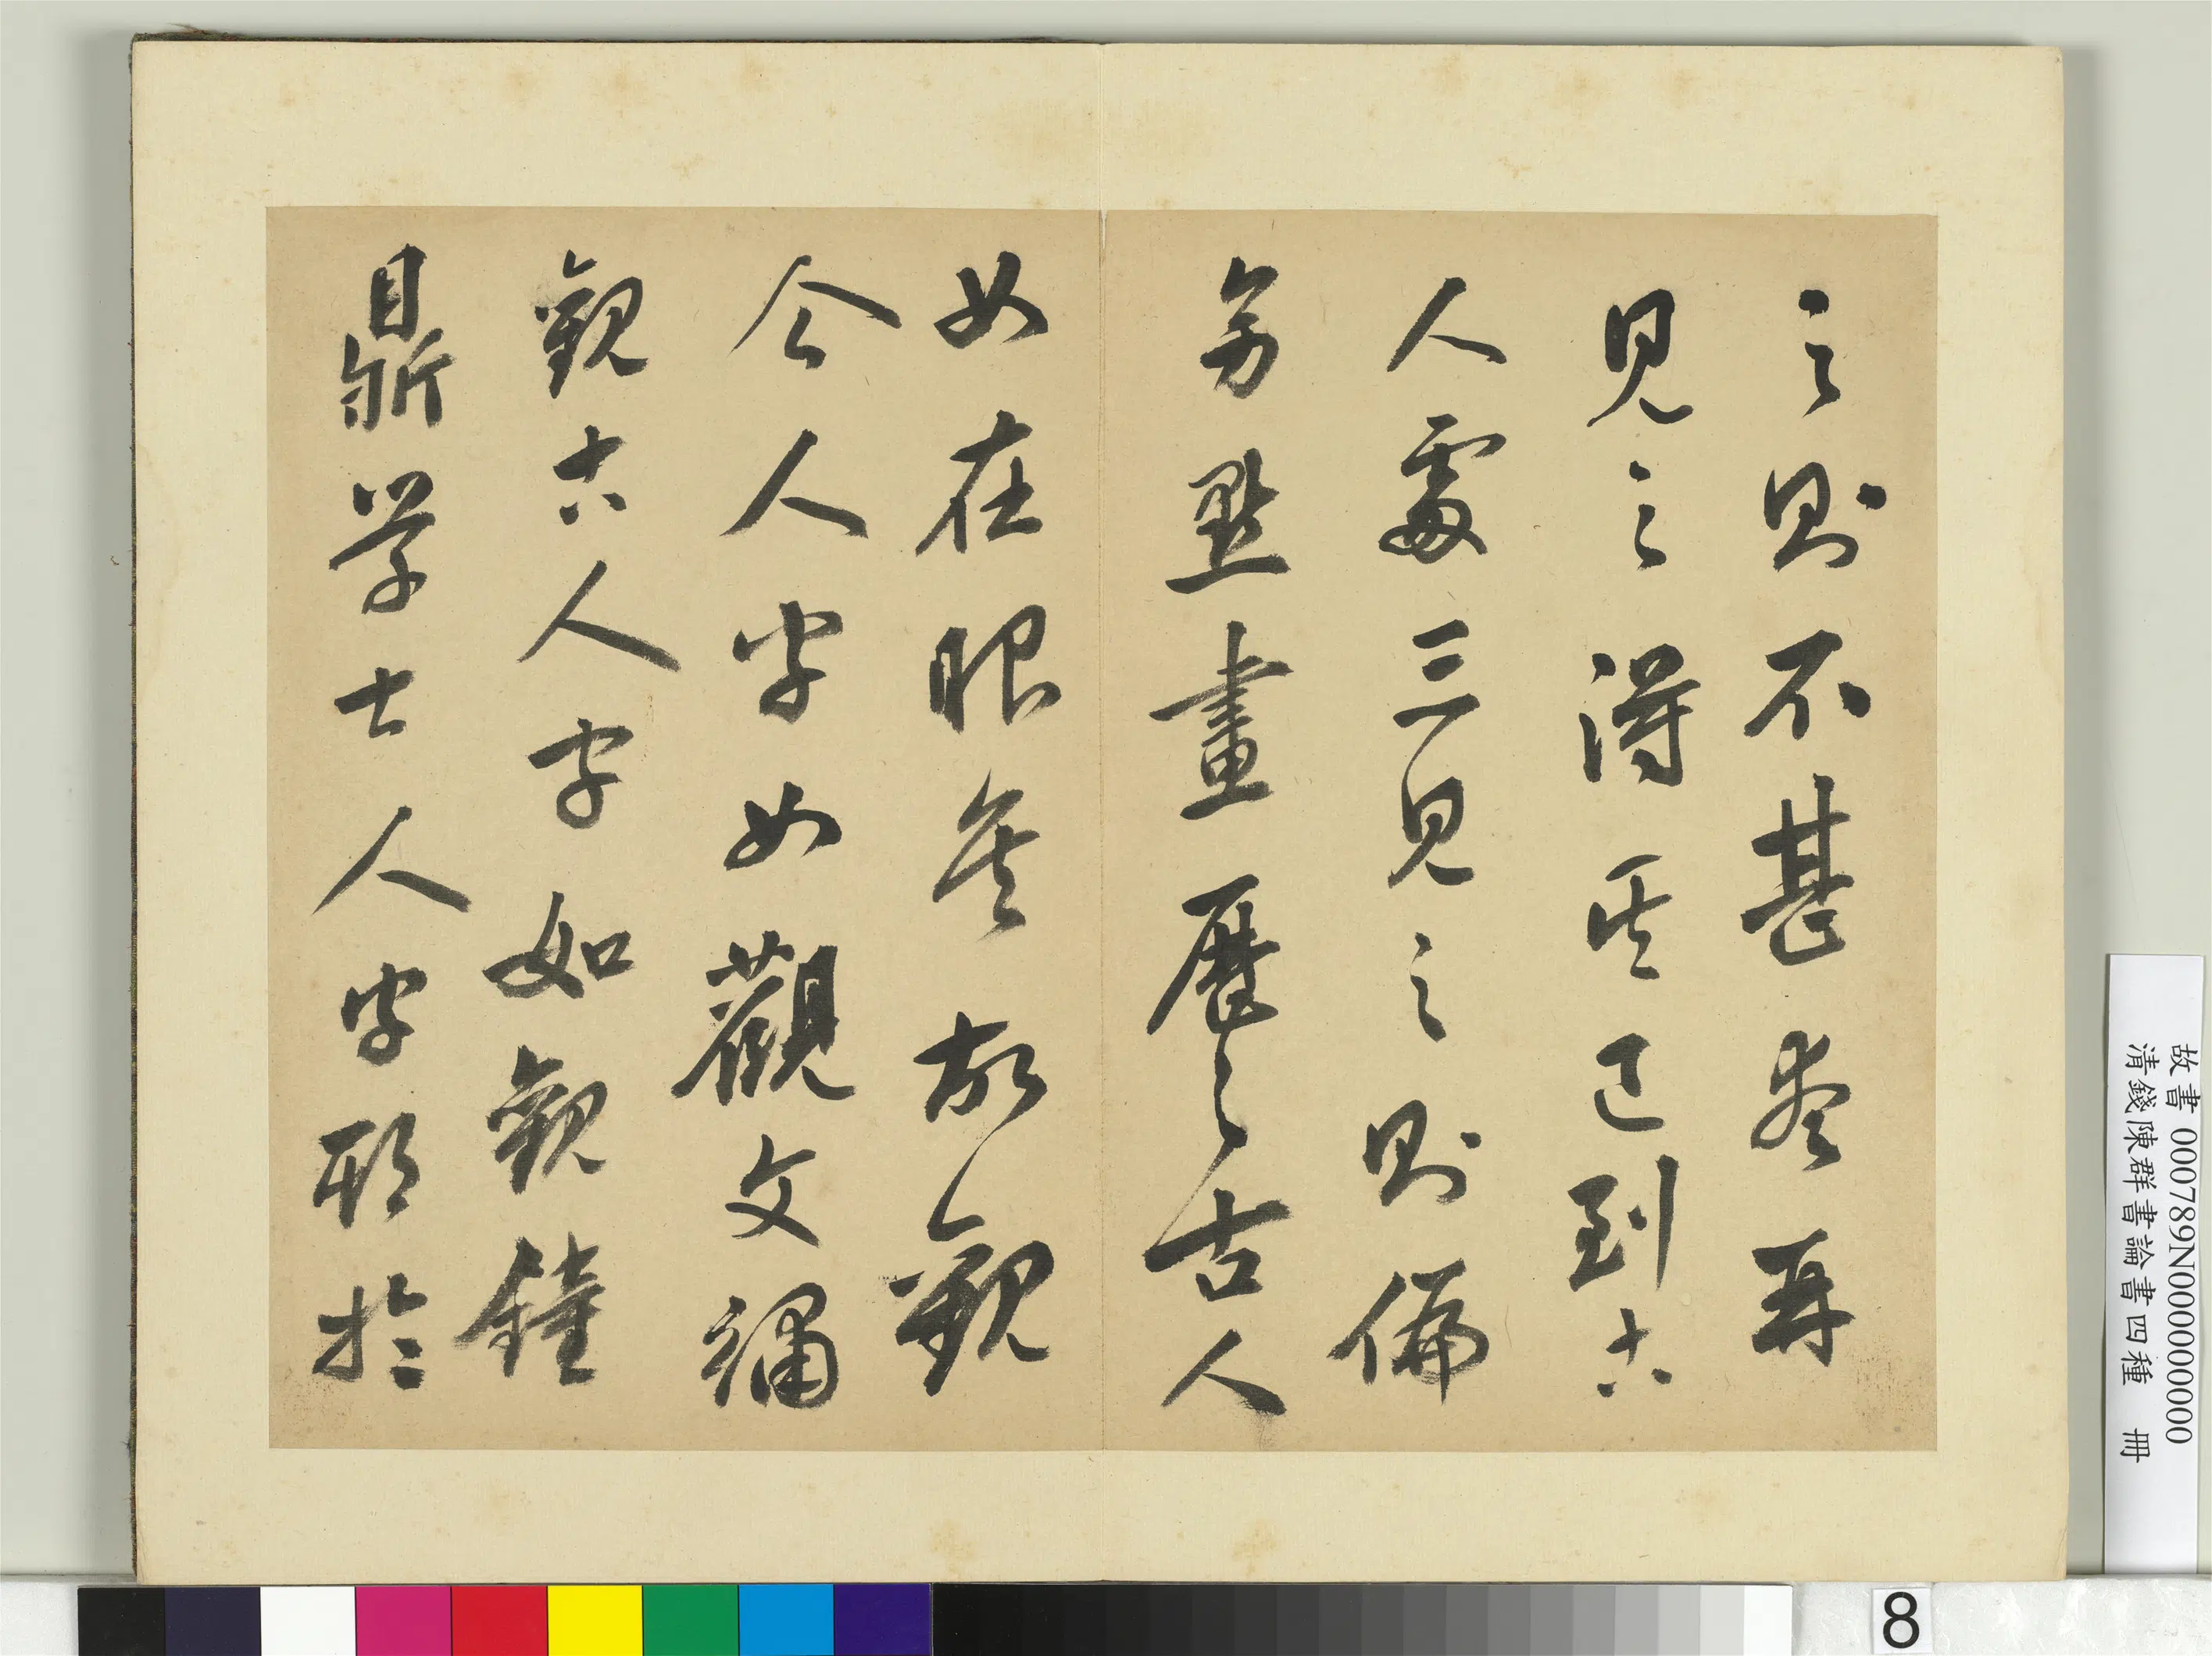 之則不甚愛再
見之得其已到古
人處三見之則偏
旁點畫歷〻古人
如在眼矣故觀
今人字如觀文繡
觀古人字如觀鐘
鼎學古人字期於
故書 000789N000000000
清錢陳群書論書四種 冊
8